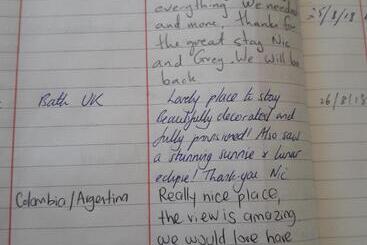 everything We needed
and more, thanks for
the great stay Nic
and Greg. We will be
back
25/8/18
Bath UK
Lovely place to stay
beautifully decorated and
fully provisioned! Also saw
a stunning sunrise & lunar
eclipse! Thank you Nic
26/8/18
Colombia/Argentina
Really nice place,
the view is amazing
we would love have